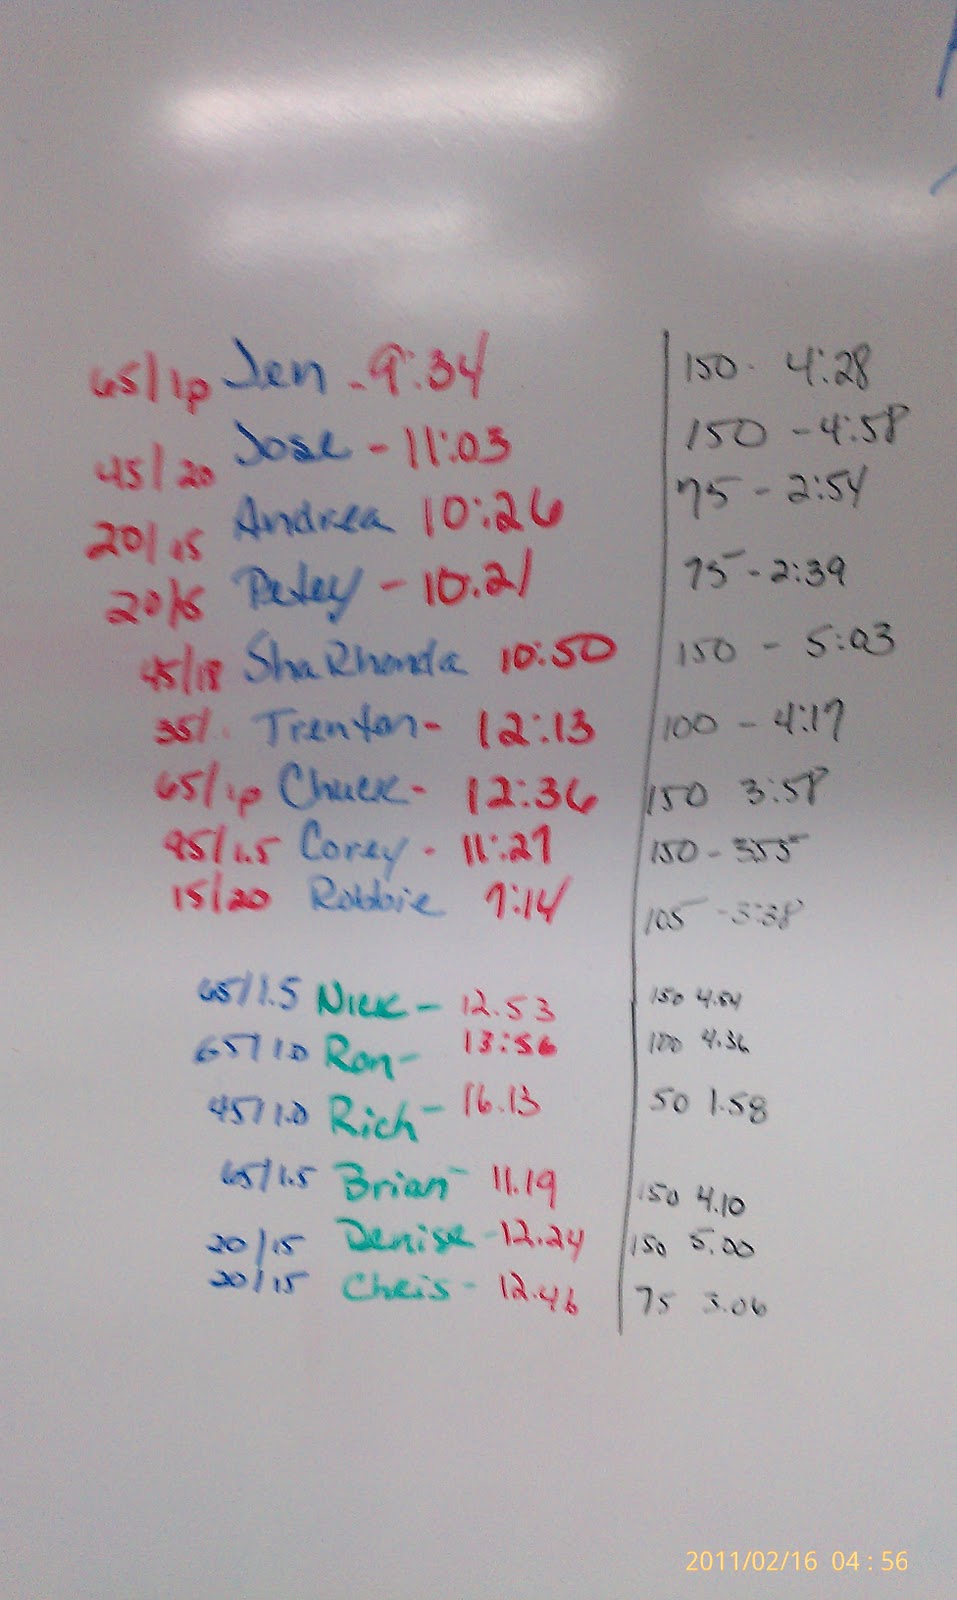 65/1p Jen - 9:34 150- 4:28
45/20 Jose - 11:03 150 - 4:58
20/15 Andrea 10:26 75 - 2:54
20/15 Petey - 10:21 75 - 2:39
45/18 ShaRhonda 10:50 150 - 5:03
35/ Trenton - 12:13 100 - 4:17
65/1p Chuck - 12:36 150 3:58
95/1.5 Corey - 11:27 150 - 355
15/20 Robbie 9:14 105 - 3:38
65/1.5 Nick - 12.53 150 4.54
65/1.0 Ron - 13:56 100 4.36
45/1.0 Rich - 16.13 50 1.58
65/1.5 Brian - 11.19 150 4.10
20/15 Denise - 12.24 150 5.00
20/15 Chris - 12.46 75 3.06
2011/02/16 04:56